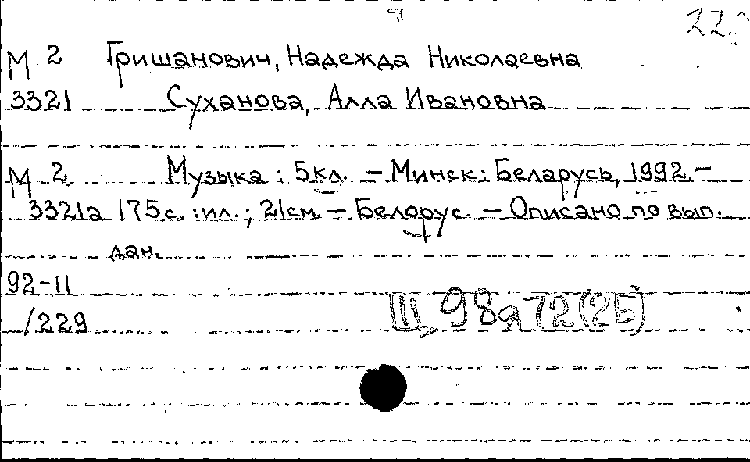 М 2 Гришанович, Надежда Николаевна
3321 Суханова, Алла Ивановна
М 2 Музыка : 5 кл. – Минск : Беларусь, 1992. –
3321а 175 с. : ил. ; 21 см. – Белорус. – Описано по вып.
дан.
92-11
/229
Щ 98я72(2Б)